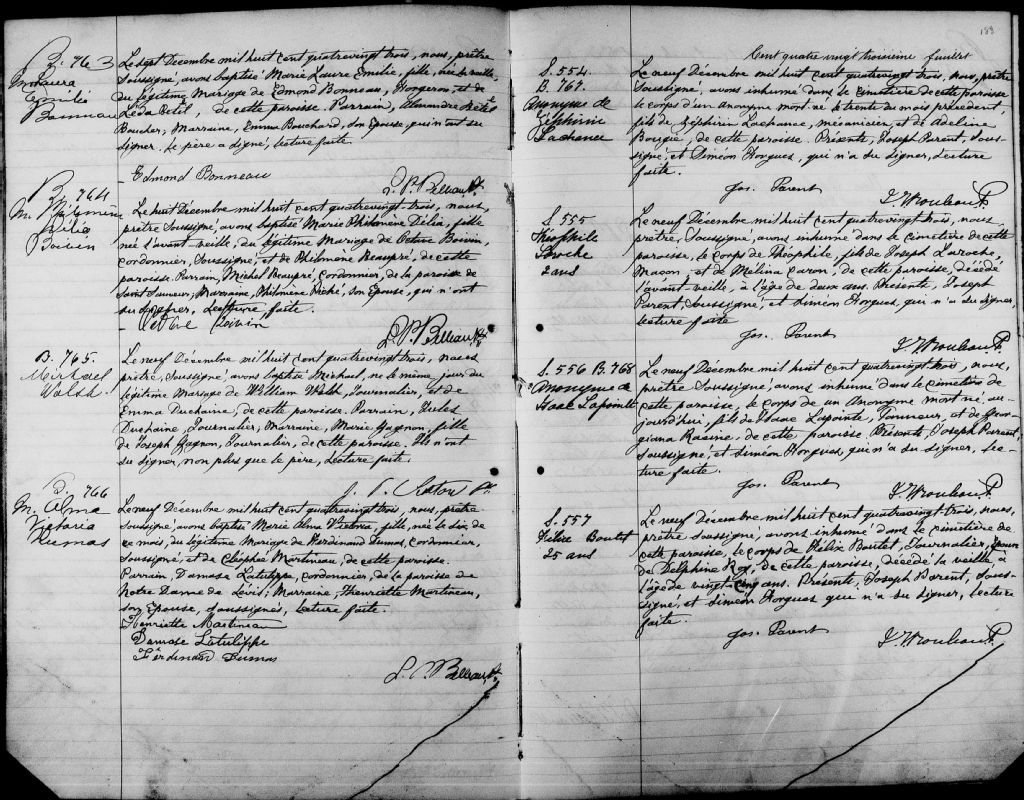 B. 763
M. Laura
Emilie
Bonneau
Le sept Décembre mil huit cent quatrevingt trois, nous, prêtre
Soussigné, avons baptisé Marie Laure Emilie, fille, née la veille,
du légitime Mariage de Edmond Bonneau, Forgeron, et de
Léda Petit, de cette paroisse. Parrain, Alexandre
Boucher; Marraine, Emma Bouchard, son Epouse, qui n'ont su
signer. Le père a signé, lecture faite.
Edmond Bonneau
B. 764
M. Philomène
Délia
Boivin
Le huit Décembre mil huit cent quatrevingt trois, nous,
prêtre Soussigné, avons baptisé Marie Philomène Délia, fille
née l'avant veille, du légitime Mariage de Octave Boivin,
cordonnier, Soussigné, et de Philomène Beaupré, de cette
paroisse. Parrain, Michel Beaupré, cordonnier, de la paroisse de
Saint Sauveur; Marraine, Philomène Piché, son Epouse, qui n'ont
su signer, Lecture faite.
Octave Boivin
B. 765.
Michael
Walsh
Le neuf Décembre mil huit cent quatrevingt trois, nous
prêtre, Soussigné, avons baptisé Michael, né le même jour, du
légitime Mariage de William Walsh, Journalier, et de
Emma Duchaine, de cette paroisse. Parrain, Jules
Duchaine, Journalier; Marraine, Marie Gagnon, fille
de Joseph Gagnon, Journalier, de cette paroisse. Ils n'ont
su signer, non plus que le père, Lecture faite.
B. 766
M. Alma
Victoria
Dumas
Le neuf Décembre mil huit cent quatrevingt trois, nous, prêtre
Soussigné, avons baptisé Marie Alma Victoria, fille, née le six de
ce mois, du légitime Mariage de Ferdinand Dumas, cordonnier,
Soussigné, et de Cléophé Martineau, de cette paroisse.
Parrain, Damase Latulippe, cordonnier, de la paroisse de
Notre Dame de Lévis, Marraine, Henriette Martineau,
son Epouse, Soussignés, Lecture faite.
Henriette Martineau
Damase Latulippe
Ferdinand Dumas
Cent quatre vingt troisième feuillet
S. 554.
B. 767.
Anonyme de
Zéphirin
Lachance
Le neuf Décembre mil huit cent quatrevingt trois, nous, prêtre
Soussigné, avons inhumé dans le cimetière de cette paroisse
le corps d'un Anonyme mort-né le trente du mois précédent,
fils de Zéphirin Lachance, mécanicien, et de Adeline
Bourgie, de cette paroisse. Présents, Joseph Parent, Sous-
signé, et Siméon Horgues, qui n'a su signer, Lecture
faite.
Jos. Parent
S. 555
Théophile
Laroche
2 ans
Le neuf Décembre mil huit cent quatrevingt trois, nous
prêtre, Soussigné, avons inhumé dans le cimetière de cette
paroisse, le corps de Théophile, fils de Joseph Laroche,
Maçon, et de Mélina Caron, de cette paroisse, décédé
l'avant-veille, à l'âge de deux ans. Présents, Joseph
Parent, Soussigné, et Siméon Horgues, qui n'a su signer,
lecture faite
Jos. Parent
S. 556 B. 768
Anonyme de
Isaac Lapointe
Le neuf Décembre mil huit cent quatrevingt trois, nous,
prêtre Soussigné, avons inhumé dans le cimetière de
cette paroisse, le corps de un Anonyme mort né au-
jourd'hui, fils de Isaac Lapointe, Tonneur, et de Geor-
giana Racine, de cette paroisse. Présents, Joseph Parent,
Soussigné, et Siméon Horgues, qui n'a su signer, Lec-
ture faite.
Jos. Parent
S. 557
Félix Boutet
25 ans
Le neuf Décembre mil huit cent quatrevingt trois, nous,
prêtre Soussigné, avons inhumé dans le cimetière de
cette paroisse, le corps de Félix Boutet, Journalier, Epoux
de Delphine Roy, de cette paroisse, décédé la veille à
l'âge de vingt-cinq ans. Présents, Joseph Parent, Sous-
signé, et Siméon Horgues qui n'a su signer, Lecture
faite.
Jos. Parent